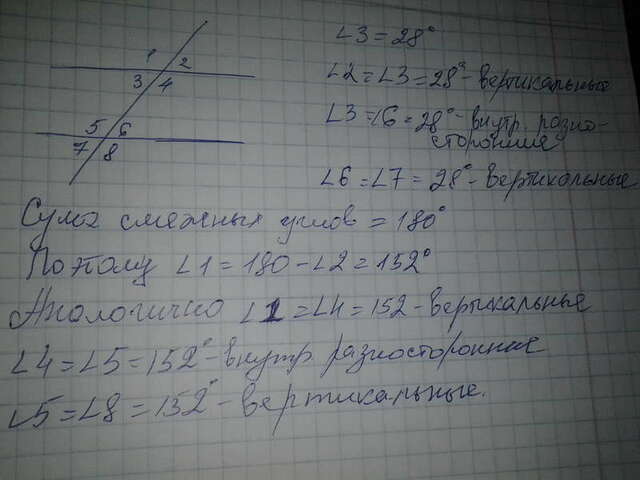 1 2
3 4
5 6
7 8
∠3 = 28°
∠2 = ∠3 = 28° - вертикальные
∠3 = ∠6 = 28° - внутр. разно-
сторонние
∠6 = ∠7 = 28° - вертикальные
Сума смежных углов = 180°
Поэтому ∠1 = 180 - ∠2 = 152°
Анологично ∠1 = ∠4 = 152 - вертикальные
∠4 = ∠5 = 152° - внутр. разносторонние
∠5 = ∠8 = 152° - вертикальные.